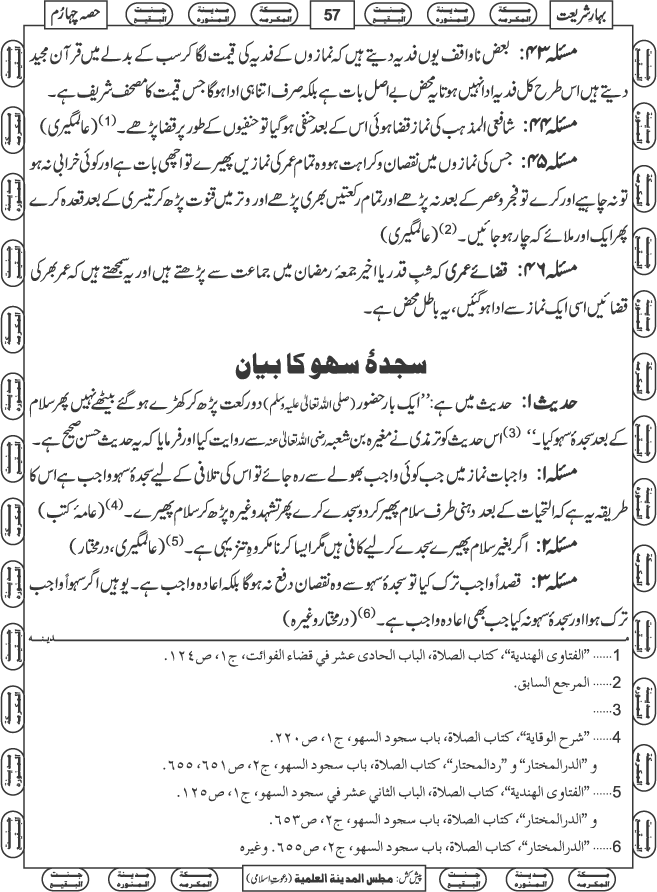 بہارِ شریعت
مکۃ المکرمہ
مدینۃ المنورہ
جنت البقیع
57
مکۃ المکرمہ
مدینۃ المنورہ
جنت البقیع
حصہ چہارم
مسئلہ ۴۳: بعض ناواقف یوں فدیہ دیتے ہیں کہ نمازوں کے فدیہ کی قیمت لگا کر سب کے بدلے میں قرآن مجید
دیتے ہیں اس طرح کل فدیہ ادا نہیں ہوتا یہ محض بے اصل بات ہے بلکہ صرف اتنا ہی ادا ہوگا جس قیمت کا مصحف شریف ہے۔
مسئلہ ۴۴: شافعی المذہب کی نماز قضا ہوئی اس کے بعد حنفی ہوگیا تو حنفیوں کے طور پر قضا پڑھے۔ (1) (عالمگیری)
مسئلہ ۴۵: جس کی نمازوں میں نقصان و کراہت ہو وہ تمام عمر کی نمازیں پھیرے تو اچھی بات ہے اور کوئی خرابی نہ ہو
تو نہ چاہیے اور کرے تو فجر و عصر کے بعد نہ پڑھے اور تمام رکعتیں بھری پڑھے اور وتر میں قنوت پڑھ کر تیسری کے بعد قعدہ کرے
پھر ایک اور ملائے کہ چار ہو جائیں۔ (2) (عالمگیری)
مسئلہ ۴۶: قضائے عمری کہ شبِ قدر یا اخیر جمعۂ رمضان میں جماعت سے پڑھتے ہیں اور یہ سمجھتے ہیں کہ عمر بھر کی
قضائیں اسی ایک نماز سے ادا ہوگئیں، یہ باطل محض ہے۔
سجدۂ سھو کا بیان
حدیث ۱: حدیث میں ہے: ’’ایک بار حضور (صلی اللہ تعالیٰ علیہ وسلم) دو رکعت پڑھ کر کھڑے ہوگئے بیٹھے نہیں پھر سلام
کے بعد سجدۂ سہو کیا۔‘‘ (3) اس حدیث کو ترمذی نے مغیرہ بن شعبہ رضی اللہ تعالیٰ عنہ سے روایت کیا اور فرمایا کہ یہ حدیث حسن صحیح ہے۔
مسئلہ ۱: واجبات نماز میں جب کوئی واجب بھولے سے رہ جائے تو اس کی تلافی کے لیے سجدۂ سہو واجب ہے اس کا
طریقہ یہ ہے کہ التحیات کے بعد دہنی طرف سلام پھیر کر دو سجدے کرے پھر تشہد وغیرہ پڑھ کر سلام پھیرے۔ (4) (عامۂ کتب)
مسئلہ ۲: اگر بغیر سلام پھیرے سجدے کر لیے کافی ہیں مگر ایسا کرنا مکروہِ تنزیہی ہے۔ (5) (عالمگیری، درمختار)
مسئلہ ۳: قصداً واجب ترک کیا تو سجدۂ سہو سے وہ نقصان دفع نہ ہوگا بلکہ اعادہ واجب ہے۔ یوہیں اگر سہواً واجب
ترک ہوا اور سجدۂ سہو نہ کیا جب بھی اعادہ واجب ہے۔ (6) (درمختار وغیرہ)
مدینہ
1...... "الفتاوی الهندیة"، کتاب الصلاة، الباب الحادی عشر في قضاء الفوائت، ج١، ص١٢٤.
2...... المرجع السابق.
3......
4...... "شرح الوقایة"، کتاب الصلاة، باب سجود السهو، ج١، ص٢٢٠.
و "الدرالمختار" و "ردالمحتار"، کتاب الصلاة، باب سجود السهو، ج٢، ص٦٥١، ٦٥٥.
5...... "الفتاوی الهندیة"، کتاب الصلاة، الباب الثاني عشر في سجود السهو، ج١، ص١٢٥.
و "الدرالمختار"، کتاب الصلاة، باب سجود السهو، ج٢، ص٦٥٣.
6...... "الدرالمختار"، کتاب الصلاة، باب سجود السهو، ج٢، ص٦٥٥. وغیرہ
مکۃ المکرمہ
مدینۃ المنورہ
جنت البقیع
پیش کش: مجلس المدینة العلمیة (دعوتِ اسلامی)
مکۃ المکرمہ
مدینۃ المنورہ
جنت البقیع